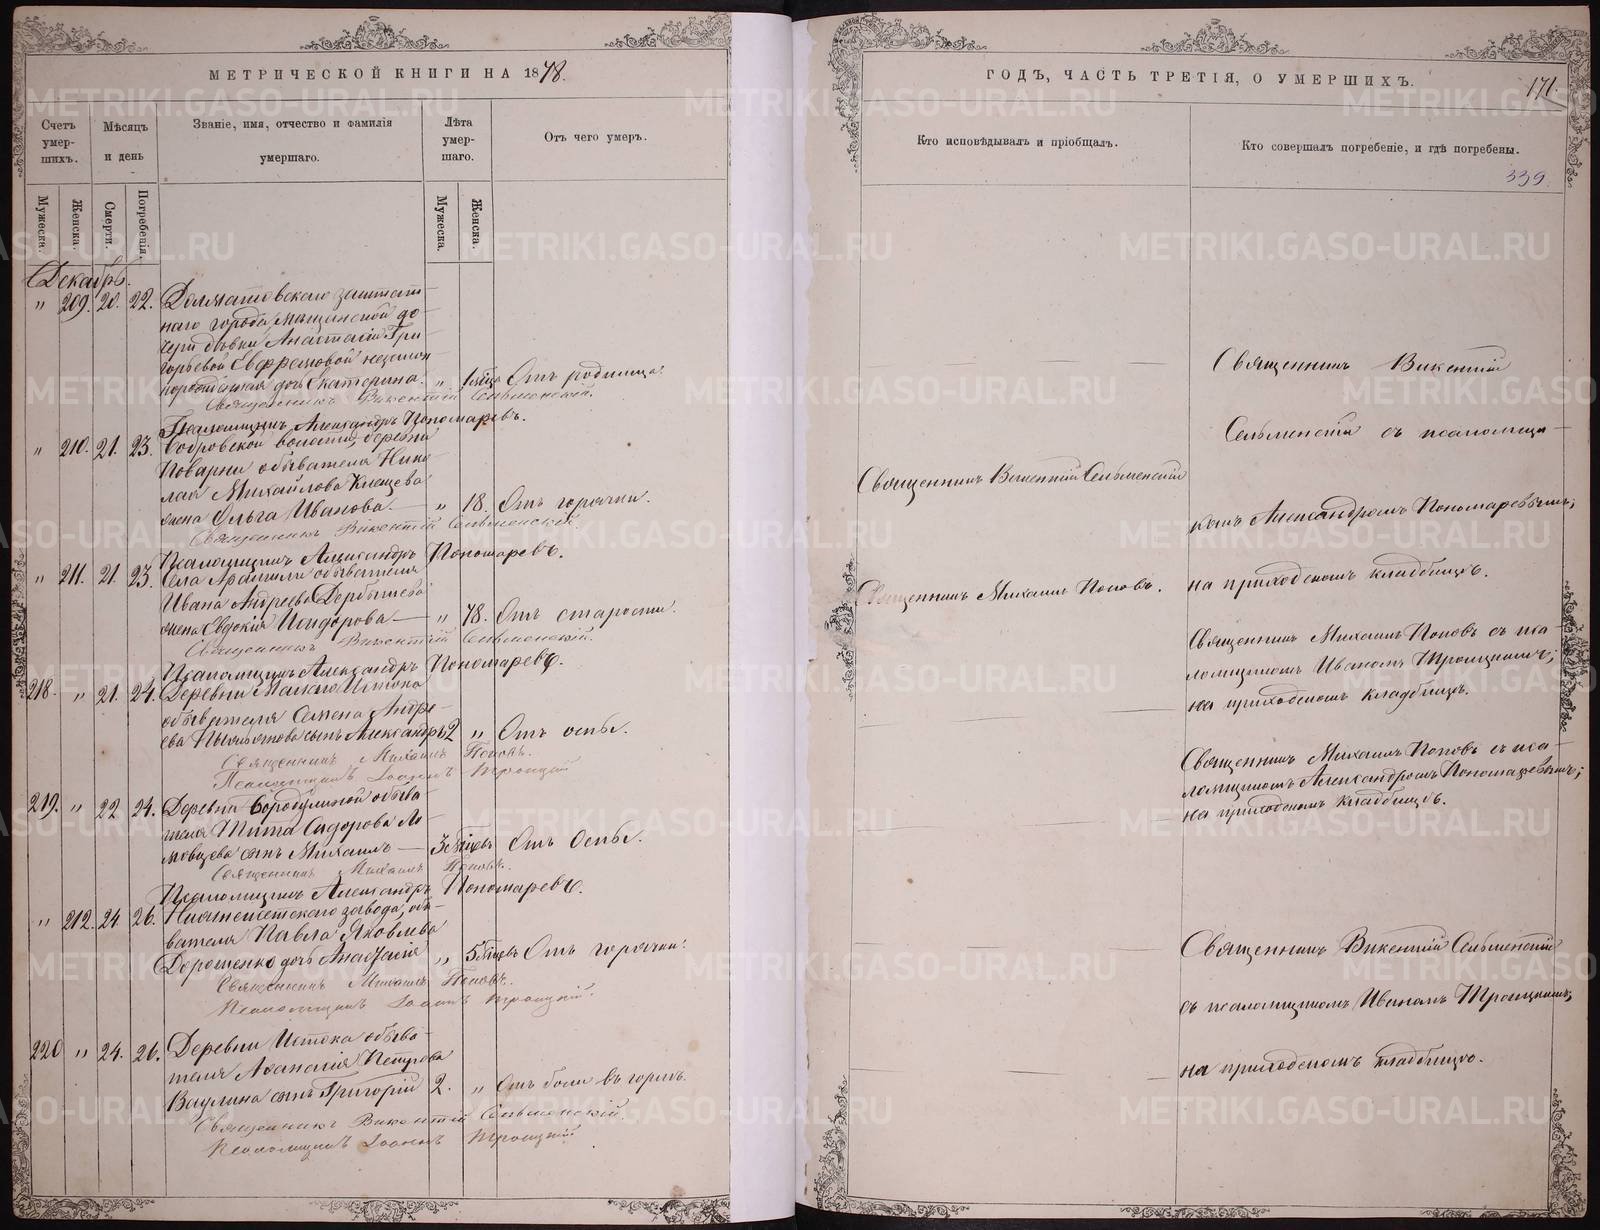 МЕТРИЧЕСКОЙ КНИГИ НА 1878.
Счетъ умер-шихъ.
Мѣсяцъ и день
Званіе, имя, отчество и фамилія умершаго.
Лѣта умер-шаго.
Отъ чего умеръ.
Мужеска.
Женска.
Смерти.
Погребенія.
Мужеска.
Женска.
Декабрь.
" 209. 20. 22. Долматовскаго заштат-
наго города, мѣщанской до-
чери дѣвки Анастасіи Гри-
горьевой Евфремовой незакон-
норожденная дочь Екатерина. " 1 мѣсяца Отъ родимца.
Священникъ Викентій Сельменскій.
Псаломщикъ Александръ Пономаревъ.
" 210. 21. 23. Бобровской волости, деревни
Поварни обывателя Нико-
лая Михайлова Клещева
жена Ольга Иванова. — " 18. Отъ горячки.
Священникъ Викентій Сельменскій.
Псаломщикъ Александръ Пономаревъ.
" 211. 21. 23. Села Арамили обывателя
Ивана Андреева Дербышева
жена Евдокія Исидорова — " 78. Отъ старости.
Священникъ Викентій Сельменскій.
Псаломщикъ Александръ Пономаревъ.
218. " 21. 24. Деревни Малаго Истока
обывателя Семена Андре-
ева сынъ Александръ 2 " Отъ оспы.
Священникъ Михаилъ Поповъ.
Псаломщикъ Іоаннъ Троицкій
219. " 22 24. Деревни Бородулиной обыва-
теля Тита Сидорова Ло-
мовцева сынъ Михаилъ — 3 мѣсяцевъ Отъ Оспы.
Священникъ Михаилъ Поповъ.
Псаломщикъ Александръ Пономаревъ.
" 212. 24. 26. Нижнеисетскаго завода, обы-
вателя Павла Яковлева
Дорошенко дочь Анастасія " 5 мѣсяцевъ Отъ горячки.
Священникъ Михаилъ Поповъ.
Псаломщикъ Іоаннъ Троицкій.
220 " 24. 26. Деревни Истока обыва-
теля Аѳанасія Петрова
Ваулина сынъ Григорій 2. " Отъ боли въ горлѣ.
Священникъ Викентій Сельменскій
Псаломщикъ Іоаннъ Троицкій
ГОДЪ, ЧАСТЬ ТРЕТІЯ, О УМЕРШИХЪ.
171.
Кто исповѣдывалъ и пріобщалъ.
Кто совершалъ погребеніе, и гдѣ погребены.
339.
Священникъ Викентій
Сельменскій съ псаломщи-
Священникъ Викентій Сельменскій
комъ Александромъ Пономаревымъ,
Священникъ Михаилъ Поповъ.
на приходскомъ кладбищѣ.
Священникъ Михаилъ Поповъ съ пса-
ломщикомъ Иваномъ Троицкимъ,
на приходскомъ кладбищѣ.
Священникъ Михаилъ Поповъ съ пса-
ломщикомъ Александромъ Пономаревымъ;
на приходскомъ кладбищѣ.
Священникъ Викентій Сельменскій
съ псаломщикомъ Иваномъ Троицкимъ,
на приходскомъ кладбищѣ.
METRIKI.GASO-URAL.RU